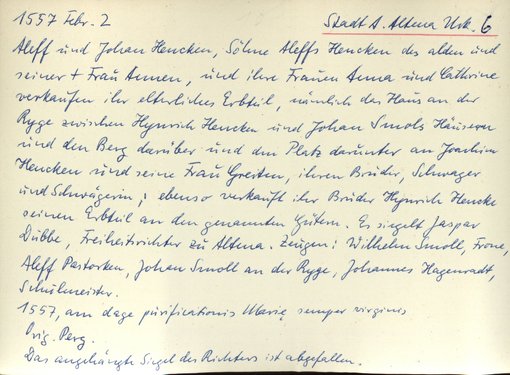 1557 Febr. 2 Stadt A. Altena Urk. 6
Aleff und Johan Hencken, Söhne Aleffs Hencken des alden und
seiner + Frau Annen, und ihre Frauen Anna und Cathrine
verkaufen ihr elterliches Erbteil, nämlich das Haus an der
Ryge zwischen Hynrich Hencken und Johan Smols Häusern
und den Berg darüber und den Platz darunter an Joachim
Hencken und seine Frau Greiten, ihren Bruder, Schwager
und Schwägerin; ebenso verkauft ihr Bruder Hynrich Hencke
seinen Erbteil an den genannten Gütern. Es siegelt Jaspar
Dübbe, Freiheitsrichter zu Altena. Zeugen: Wilhelm Smoll, Frone,
Aleff Pastorken, Johan Smoll an der Ryge, Johannes Hagenradt,
Schulmeister.
1557, am dage purificationis Marię semper virginis
Orig. Perg.
Das angehängte Siegel des Richters ist abgefallen.